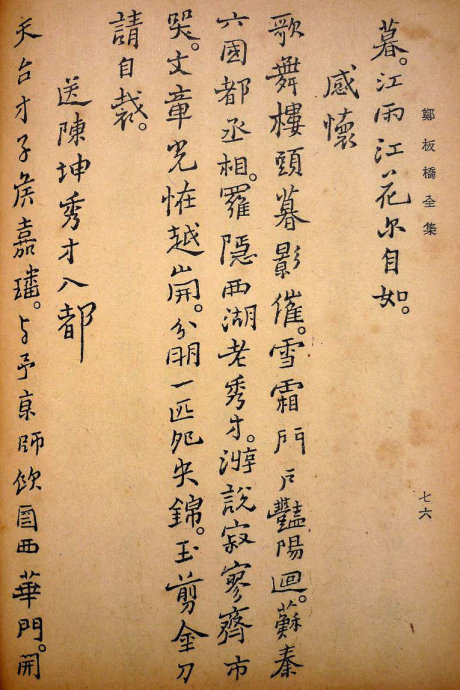 鄭板橋全集
七六
暮。江雨江花尔自如。
感懷
歌舞樓頭暮影催。雪霜門戶豔陽迴。蘇秦
六國都丞相。羅隱西湖老秀才。游說寂寥齊市
哭。文章光恠越山開。分明一匹夗央錦。玉剪金刀
請自裁。
送陳坤秀才入都
天台才子侯嘉璠。与予京師飲酉西華門。開